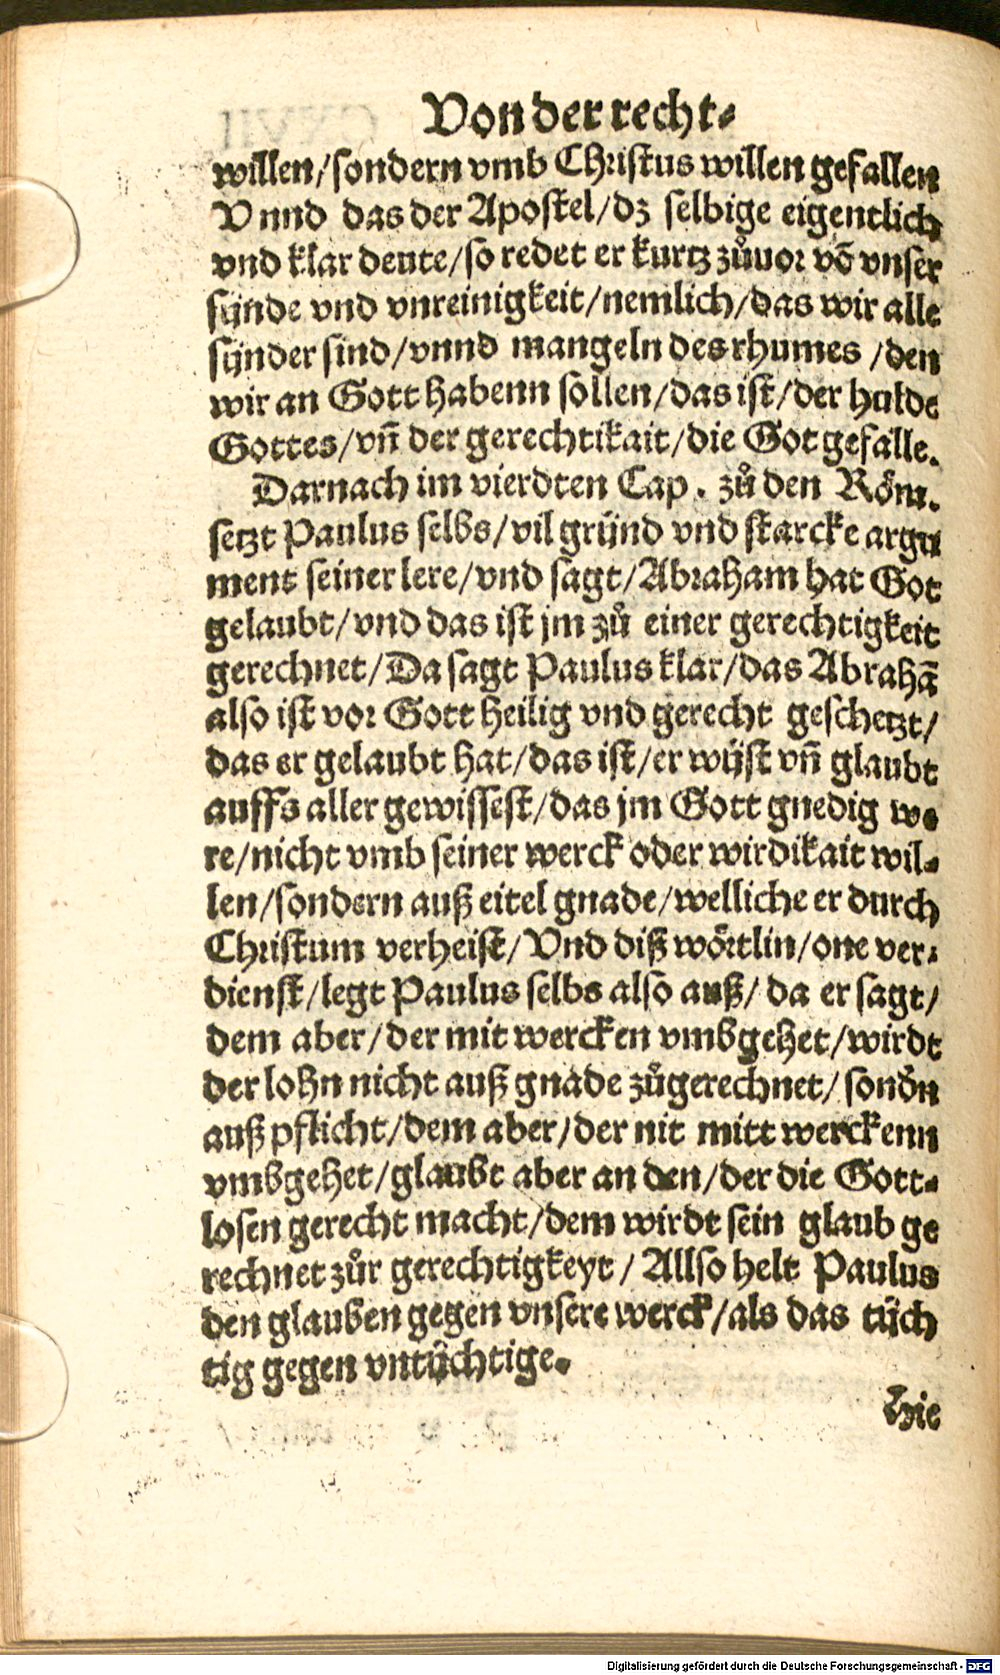 Von der recht⸗
willen/sondern vmb Christus willen gefallen
Vnnd das der Apostel/dz selbige eigentlich
vnd klar deute/so redet er kurtz zůuor võ vnser
sünde vnd vnreinigkeit/nemlich/das wir alle
sünder sind/vnnd mangeln des rhumes /den
wir an Gott habenn sollen/das ist/der hulde
Gottes/vñ der gerechtikait/die Got gefalle.
Darnach im vierdten Cap. zů den Röm.
setzt Paulus selbs/vil gründ vnd starcke argu
ment seiner lere/vnd sagt/Abraham hat Got
gelaubt/vnd das ist jm zů einer gerechtigkeit
gerechnet/Da sagt Paulus klar/das Abrahã
also ist vor Gott heilig vnd gerecht geschetzt/
das er gelaubt hat/das ist/er wüst vñ glaubt
auffs aller gewissest/das jm Gott gnedig we
re/nicht vmb seiner werck oder wirdikait wil⸗
len/sondern auß eitel gnade/welliche er durch
Christum verheist/Vnd diß wörtlin/one ver⸗
dienst/legt Paulus selbs also auß/ da er sagt/
dem aber/der mit wercken vmbgehet/wirdt
der lohn nicht auß gnade zůgerechnet/ sonđn
auß pflicht/dem aber/der nit mitt werckenn
vmbgehet/glaubt aber an den/der die Gott⸗
losen gerecht macht/dem wirdt sein glaub ge
rechnet zůr gerechtigkeyt / Allso helt Paulus
den glauben gegen vnsere werck/als das tüch
tig gegen vntüchtige.
Hie
Digitalisierung gefördert durch die Deutsche Forschungsgemeinschaft - DFG